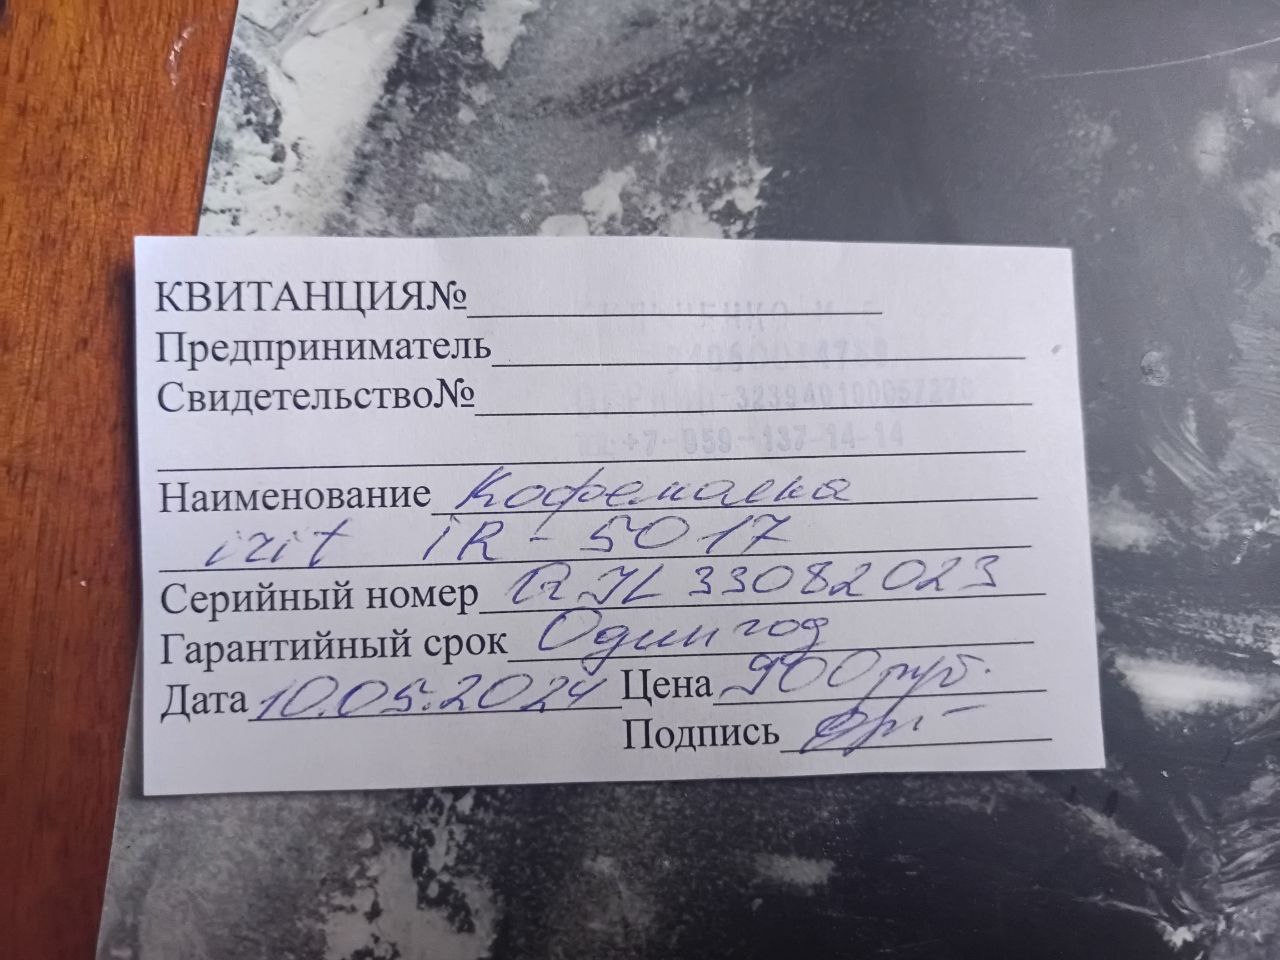 КВИТАНЦИЯ№
Предприниматель
Свидетельство№
323940100057270
+7-959-137-14-14
Наименование Кофемолка
irit iR-5017
Серийный номер JL 33082023
Гарантийный срок Один год
Дата 10.05.2024 Цена 900 руб.
Подпись